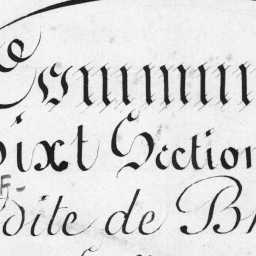 Commun
Sixt Section
F-
dite de Br